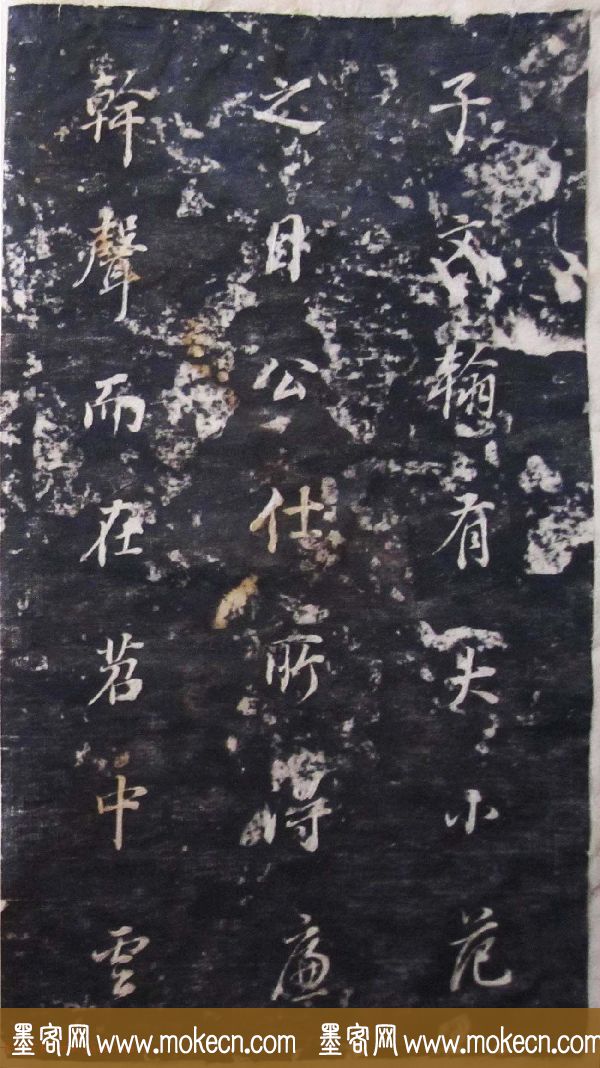 子文翰有大小范
之目公仕所得廉
幹聲而在苕中雲
墨客网 www.mokecn.com 墨客网 www.mokecn.com